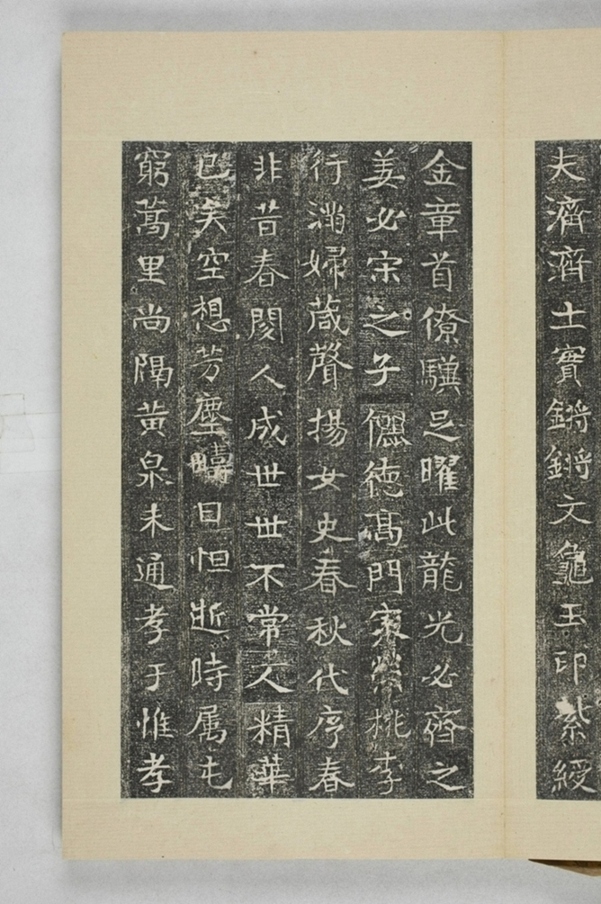 夫濟濟士實鏘鏘文龜玉印紫綬
金章首僚驥足曜此龍光必齊之
姜必宋之子儷德髙門褧桃李
行滿婦葴聲揚女史春秋代序春
非昔春閱人成世世不常人精華
已矣空想芳塵疇日怛逝時属屯
窮蒿里尚隔黄泉未通孝于惟孝